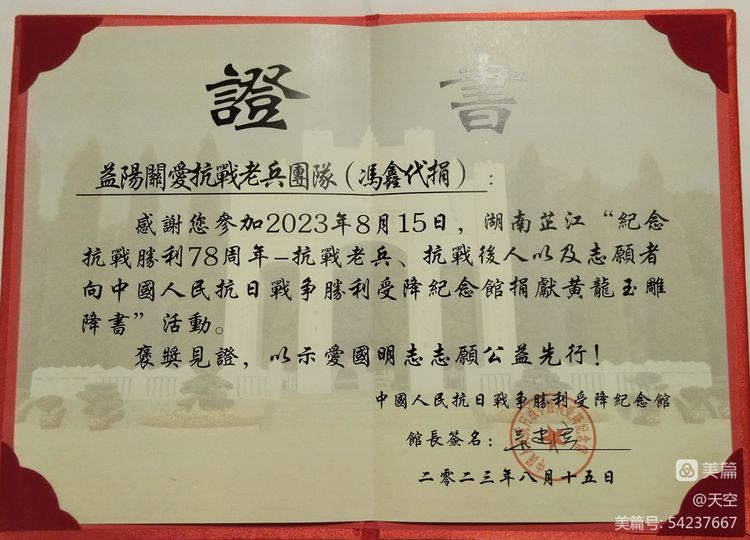 證書
益陽關愛抗戰老兵團隊（馮鑫代捐）:
感謝您參加2023年8月15日，湖南芷江“紀念
抗戰勝利78周年-抗戰老兵、抗戰後人以及志願者
向中國人民抗日戰争勝利受降紀念館捐獻黃龍玉雕
降書”活動。
褒獎見證，以示愛國明志志願公益先行！
中國人民抗日戰争勝利受降紀念館
館長簽名：
二零二三年八月十五日
美篇
@天空
美篇号: 54237667